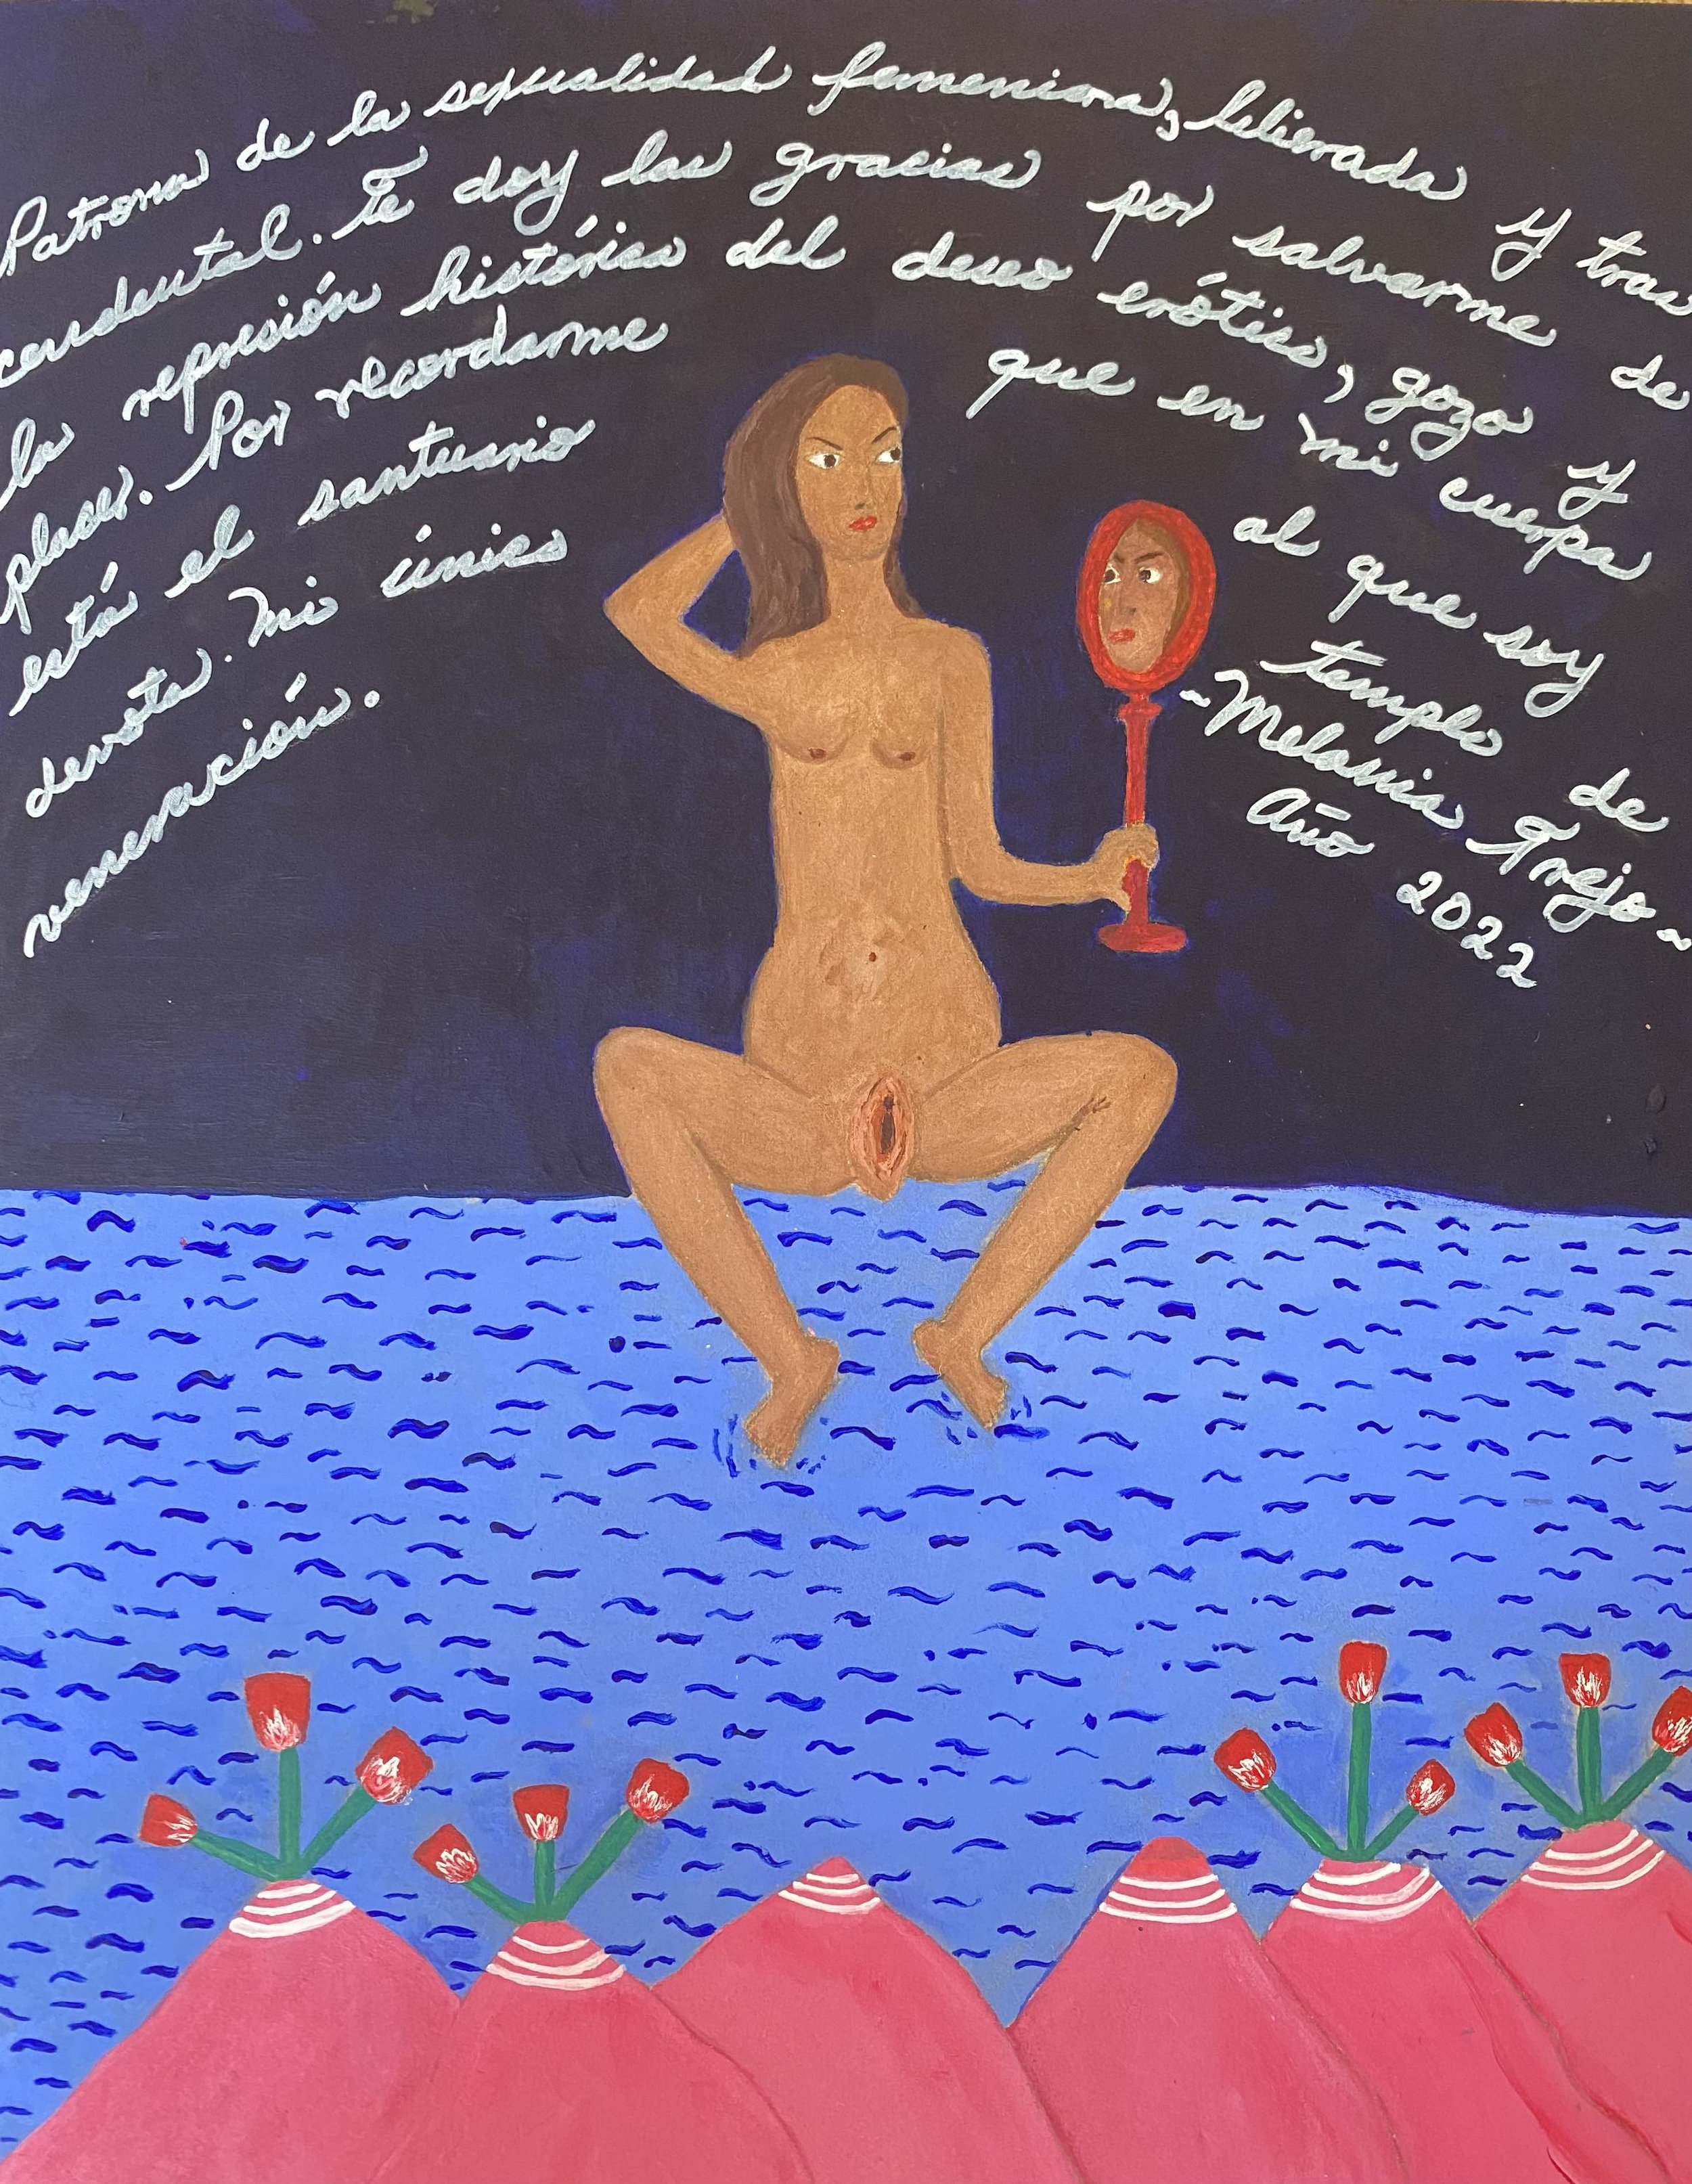 Patrona de la sexualidad femenina, liberada y tras
cendental. Te doy las gracias por salvarme de
la represión histórica del deseo erótico, gozo y
placer. Por recordarme que en mi cuerpo
está el santuario al que soy
devota. Mi único templo de
veneración.
~Melania Trejo~
Año 2022